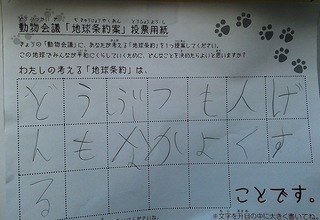 どうぶつかいぎ ちきゅうじょうやくあん とうひょうようし
動物会議「地球条約案」投票用紙
きょうの「動物会議」に、あなたが考える「地球条約」を1つ提案してください。
この地球でみんなが平和にくらしていくために、どんなことを決めたらよいと思いますか?
わたしの考える「地球条約」は、
どうぶつも人げ
んもなかよくす
る
ことです。
※文字を月日の中に大きく書いてね。